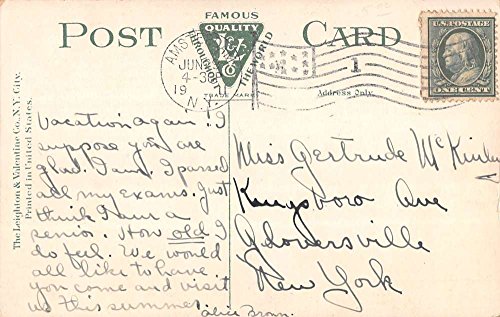 FAMOUS
QUALITY
POST CARD
THROUGHOUT THE WORLD
TRADE MARK
AMST
JUN
4-30P
19 11
N.Y.
1
Address Only.
U.S. POSTAGE
ONE CENT
The Leighton & Valentine Co., N.Y. City.
Printed in United States.
Vacation again. I
suppose you are
glad. I am. I passed
all my exams. Just
think I am a
senior. How old I
do feel. We would
all like to have
you come and visit
us this summer.
Alice Brown.
Miss Gertrude McKinlay
Kingsboro Ave
Gloversville
New York